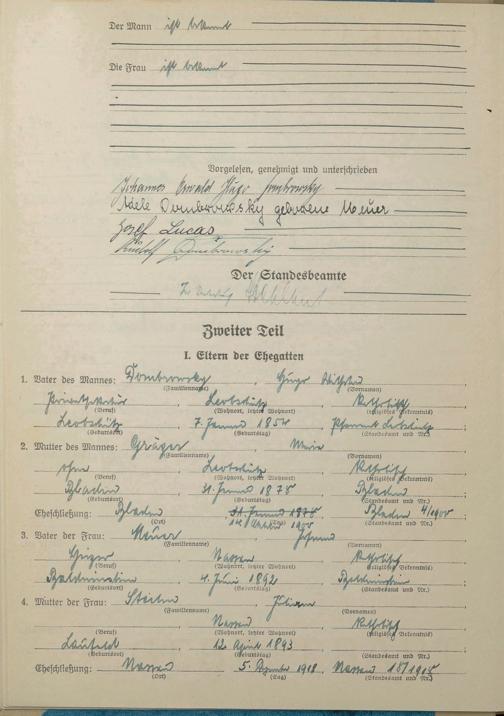 Der Mann ist bekannt
Die Frau ist bekannt
Vorgelesen, genehmigt und unterschrieben
Johannes Oswald Hugo Dombrowsky
Adele Dombrowsky geborene Meuer
Josef Lucas
Rudolf Dombrowsky
Der Standesbeamte
Zweiter Teil
I. Eltern der Ehegatten
1. Vater des Mannes: Dombrowsky, Hugo
(Familienname) (Vornamen)
Leobschütz, Katholisch
(Beruf) (Wohnort, letzter Wohnort) (religiöses Bekenntnis)
Leobschütz, 7. Januar
(Geburtsort) (Geburtstag) (Standesamt und Nr.)
2. Mutter des Mannes: Gräger, Maria
(Familienname) (Vornamen)
ohne, Leobschütz, Katholisch
(Beruf) (Wohnort, letzter Wohnort) (religiöses Bekenntnis)
Bladen, 31. Januar 1878, Bladen
(Geburtsort) (Geburtstag) (Standesamt und Nr.)
Eheschließung: Bladen, Bladen
(Ort) (Tag) (Standesamt und Nr.)
3. Vater der Frau: Meuer, Johann
(Familienname) (Vornamen)
Nassau, Katholisch
(Beruf) (Wohnort, letzter Wohnort) (religiöses Bekenntnis)
Balduinstein, 4. Juni 1892, Balduinstein
(Geburtsort) (Geburtstag) (Standesamt und Nr.)
4. Mutter der Frau:
(Familienname) (Vornamen)
Nassau, Katholisch
(Beruf) (Wohnort, letzter Wohnort) (religiöses Bekenntnis)
12. April 1893
(Geburtsort) (Geburtstag) (Standesamt und Nr.)
Eheschließung: Nassau, 5. Dezember 1918, Nassau
(Ort) (Tag) (Standesamt und Nr.)